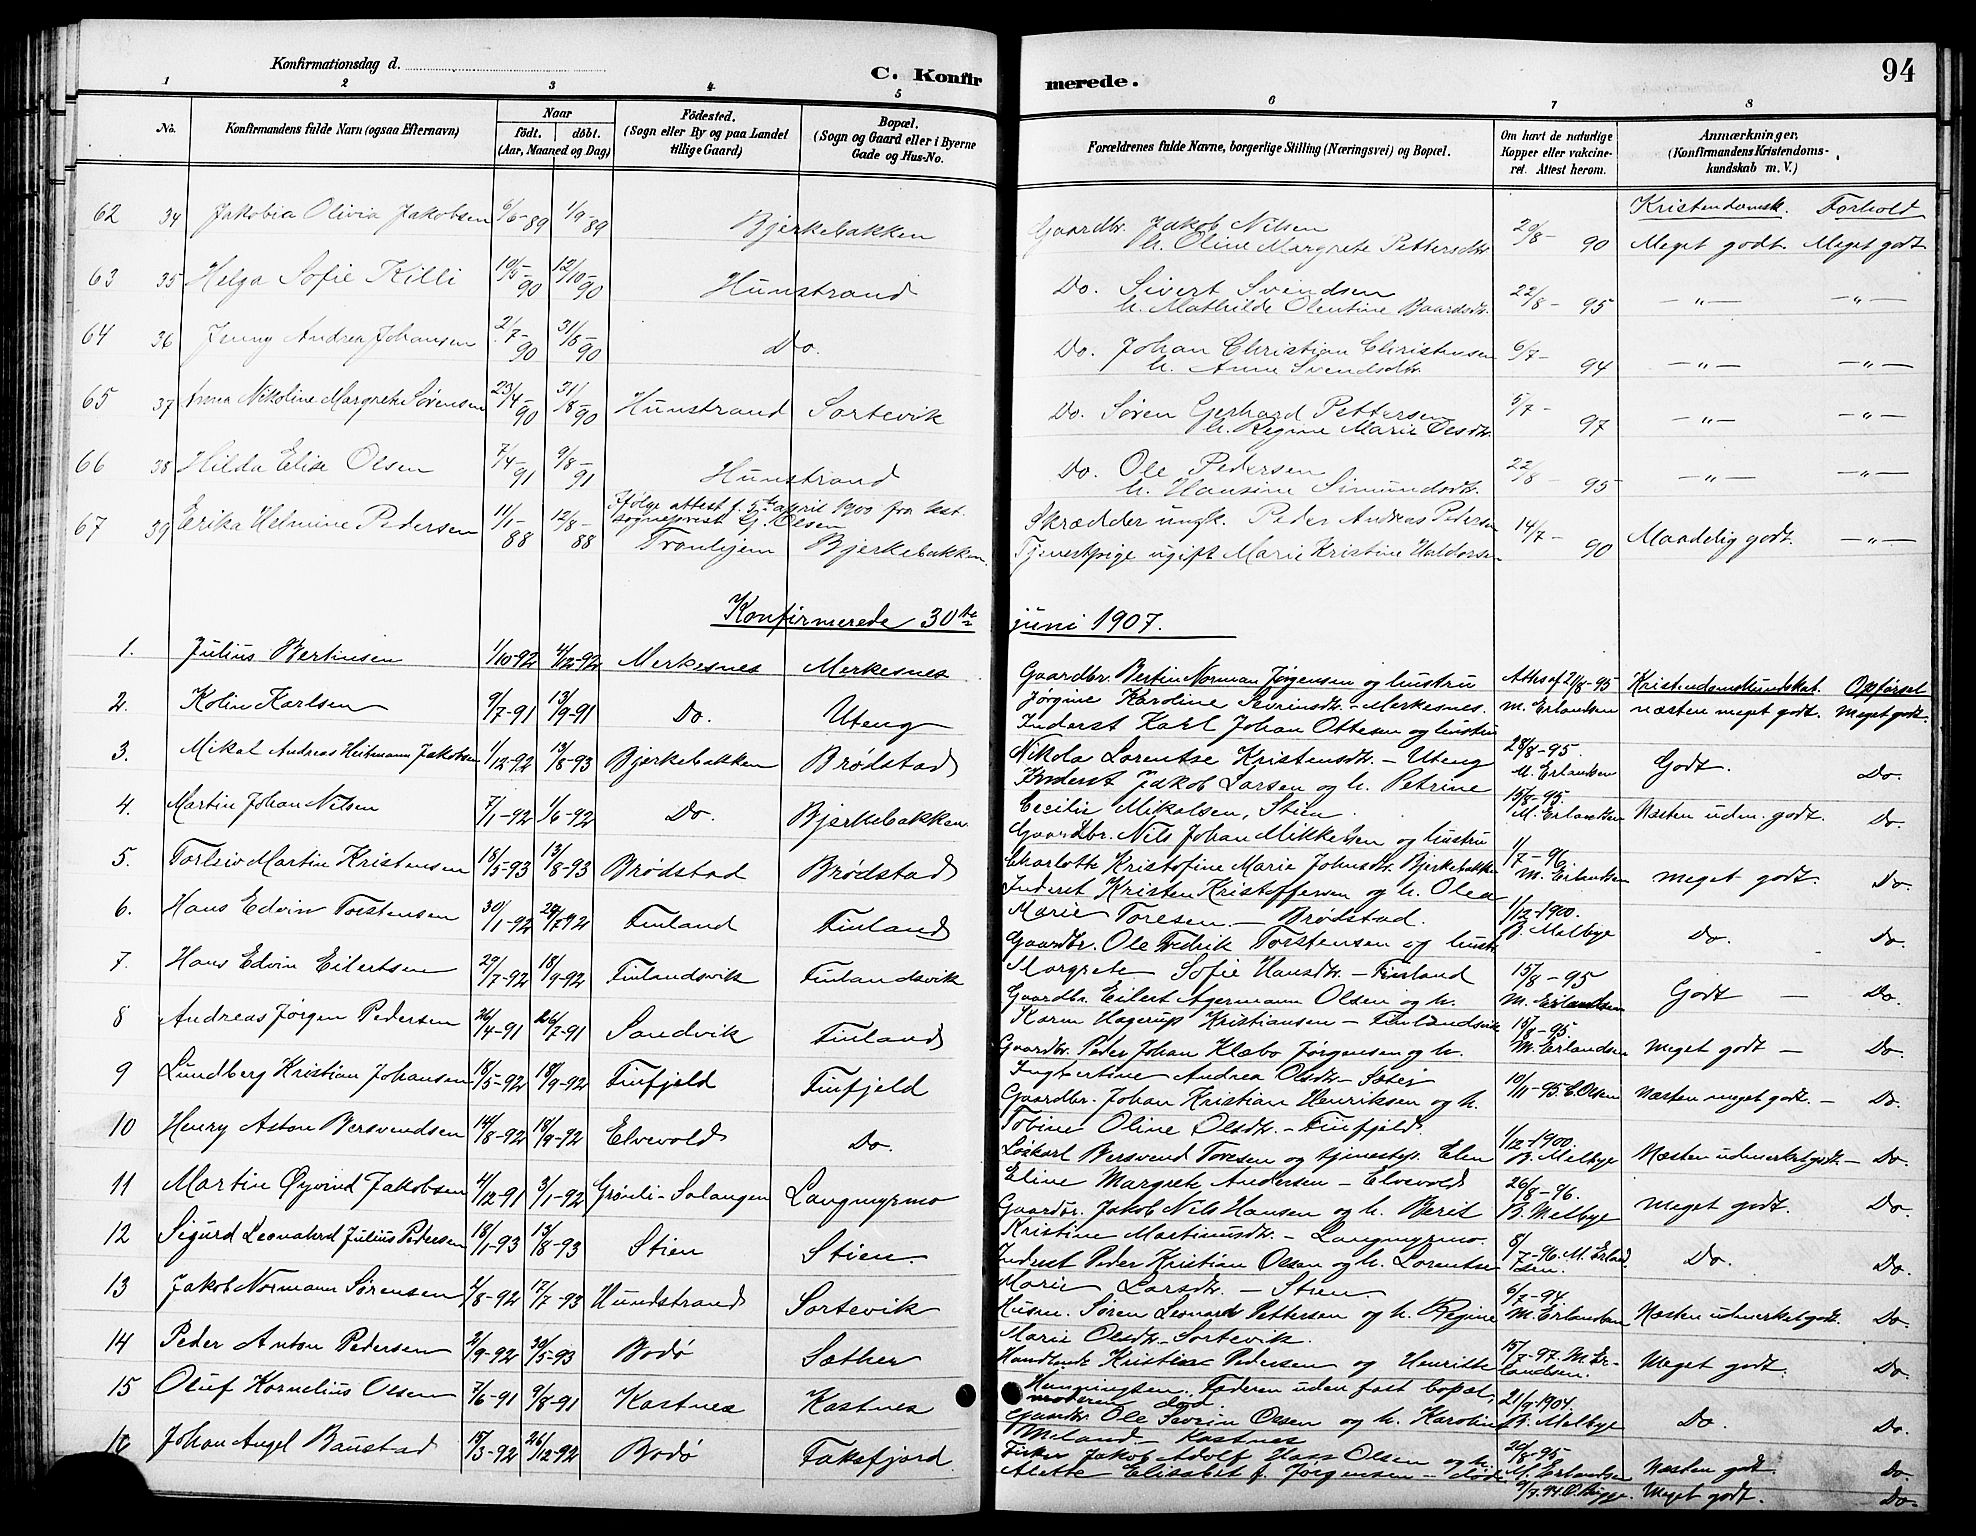 Konfirmationsdag d.
C. Konfirmerede.
94
1 2 3 4 5 6 7 8
No. Konfirmandens fulde Navn (ogsaa Efternavn) Naar født. døbt. (Aar, Maaned og Dag) Fødested. (Sogn eller By og paa Landet tillige Gaard) Bopæl. (Sogn og Gaard eller i Byerne Gade og Hus-No. Forældrenes fulde Navne, borgerlige Stilling (Næringsvei) og Bopæl. Om havt de naturlige Kopper eller vakcineret. Attest herom. Anmærkninger, (Konfirmandens Kristendomskundskab m. V.)
Kristendomsk. Forhold
62 34 Jakobia Olivia Jakobsen 6/6-89 1/9-89 Bjerkebakken Gaardbr. Jakob Nilsen
h. Oline Margrete Pettersdtr. 20/8-90 Meget godt. Meget godt
63 35 Helga Sofie Killi 10/5-90 12/10-90 Hunstrand Do. Sivert Svendsen
h. Mathilde Olentine Baardsdtr. 22/8-95 -"- -"-
64 36 Jenny Andrea Johansen 2/7-90 31/8-90 Do. Do. Johan Christian Christensen
h. Anne Svendsdtr. 6/7-94 -"- -"-
65 37 Anna Nikoline Margrete Sørensen 23/4-90 31/8-90 Hunstrand Sortevik Do. Søren Gerhard Pettersen
h. Regine Marie Olsdtr. 5/7-97 -"- -"-
66 38 Hilda Elise Olsen 7/4-91 9/8-91 Hunstrand Do. Ole Pedersen
h. Hansine Simundsdtr. 22/8-95 -"- -"-
Ifølge attest f. 5te april 1900 fra kst.
sogneprest Lj. Olsen
67 39 Erika Helmine Pedersen 11/1-88 12/8-88 Tronhjem Bjerkebakken. Skrædder ungk. Peder Andreas Pedersen
Tjenestpige ugift Marie Kristine Haldorsen 14/7-90 Maadelig godt. -"-
Konfirmerede 30te juni 1907.
1. Julius Bertinsen 1/10-92 4/12-92 Merkesnes Merkesnes Gaardbr. Bertin Norman Jørgensen og hustru
Jørgine Karoline Sevrinsdtr. - Merkesnes. Attest af 21/8-95 M. Erlandsen Kristendomskundskab. Opførsel
næsten meget godt. Meget godt.
2. Kolin Karlsen 9/7-91 13/9-91 Do. Uteng Inderst Karl Johan Ottesen og hustru
Nikola Lorentse Kristensdtr. - Uteng 28/8-95. M. Erlandsen Godt. Do.
3. Mikal Andreas Heitmann Jakobsen 1/12-92 13/8-93 Bjerkebakken Brødstad Inderst Jakob Larsen og h. Petrine
Cecilie Mikalsen, Stien. 15/8-95. M. Erlandsen Næsten udm. godt. Do.
4. Martin Johan Nilsen 7/1-92 1/6-92 Do. Bjerkebakken. Gaardbr. Nils Johan Mikkelsen og hustru
Charlotte Kristofine Marie Johnsdtr. Bjerkebakken 1/7-96. M. Erlandsen meget godt. Do.
5. Torleiv Martin Kristensen 15/5-93 13/8-93 Brødstad Brødstad Inderst Kristen Kristoffersen og h. Olea
Marie Toresen - Brødstad. 1/12-1900. B. Melbye Do. Do.
6. Hans Edvin Torstensen 30/1-92 24/7-92 Finland Finland Gaardbr. Ole Fredrik Torstensen og hustr.
Margrete Sofie Hansdtr. - Finland 15/8-95 M. Erlandsen Godt - Do.
7. Hans Edvin Eilertsen 29/7-92 18/9-92 Finlandsvik Finlandsvik Gaardbr. Eilert Agermann Olsen og h.
Karen Hagerup Kristiansen - Finlandsvik 15/8-95 M. Erlandsen meget godt - Do.
8 Andreas Jørgen Pedersen 24/4-91 26/7-91 Sandvik Finland Gaardbr. Peder Johan Klæbo Jørgensen og h.
Ingbertine Andrea Olsdtr. - Sætei 10/11-95 C. Olsen Næsten meget godt. - Do.
9 Lundberg Kristian Johansen 18/5-92 18/9-92 Finfjeld Finfjeld Gaardbr. Johan Kristian Henriksen og h.
Tobine Oline Olsdtr. - Finfjeld. 1/12-1900. B. Melbye Næsten udmerket godt - Do.
10 Henry Aston Bersvendsen 14/8-92 18/9-92 Elvevold Do. Løskarl Bersvend Toresen og tjenestep. Elen
Eline Margrete Andersen - Elvevold 26/8-96. B. Melbye Meget godt. Do.
11 Martin Øyvind Jakobsen 4/12-91 3/1-92 Grønli - Salangen Langmyrmo Gaardbr. Jakob Nils Hansen og h. Berit
Kristine Martinusdtr. - Langmyrmo. 8/7-96. M. Erlandsen. Do. Do.
12 Sigurd Leonahrd Julius Pedersen 18/1-93 13/8-93 Stien Stien. Inderst Peder Kristian Olsen og h. Lorentse
Marie Larsdtr. - Stien 6/7-94. M. Erlandsen Næsten udmerket godt. Do.
13 Jakob Normann Sørensen 2/8-92 17/7-93 Hundstrand Sortevik Husm. Søren Leonard Pettersen og h. Regine
Marie Olsdtr. Sortevik. 15/7-97. M. Erlandsen. Meget godt. Do.
14 Peder Anton Pedersen 21/9-92 30/5-93 Bodø Sæther Handlende Kristian Pedersen og Henritte
Henningsen. Faderen uden fast bopæl,
moderen død. 21/9-1904. B. Melbye Do. Do.
15 Oluf Kornelius Olsen 7/6-91 9/8-91 Kastnes Kastnes Gaardbr. Ole Severin Olsen og h. Karoline
Meland - Kastnes 20/8-95 M. Erlandsen Næsten godt. Do.
16 Johan Angel Baustad 19/3-92 26/12-92 Bodø Faksfjord Fisker Jakob Adolf Hass Olsen og h.
Alette Elisabet f. Jørgensen - 9/7.94 O. Bugge. Meget godt. Do.